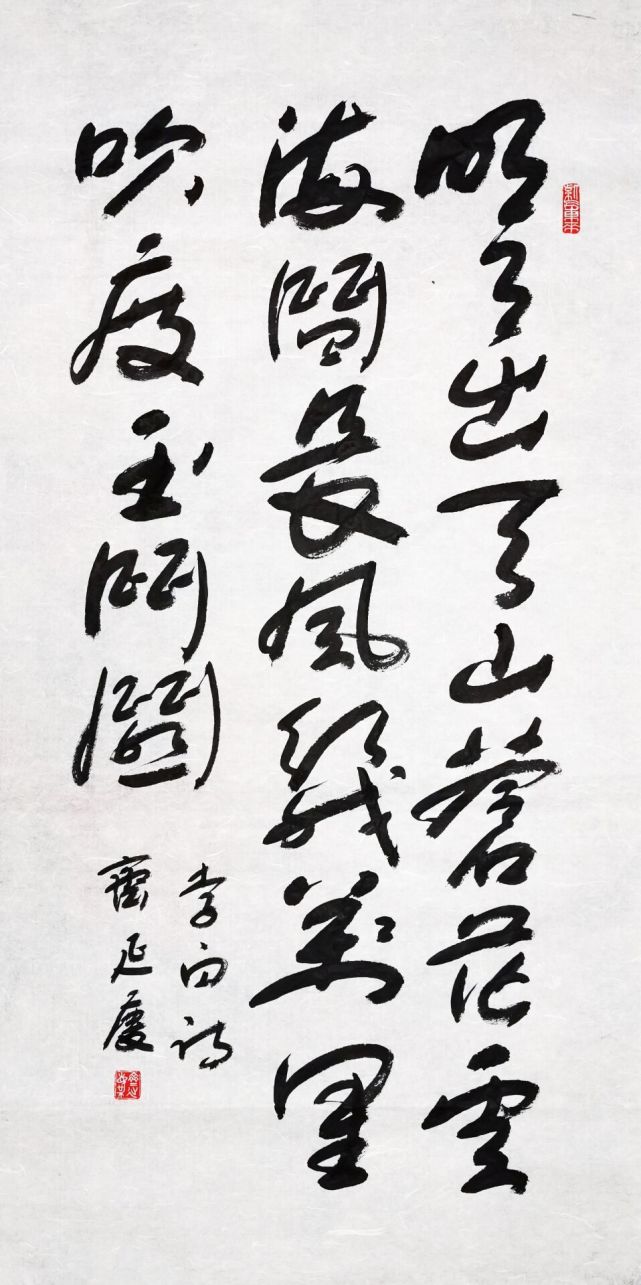 明月出天山蒼茫雲
海間長風幾萬里
吹度玉門關
李白詩
延慶